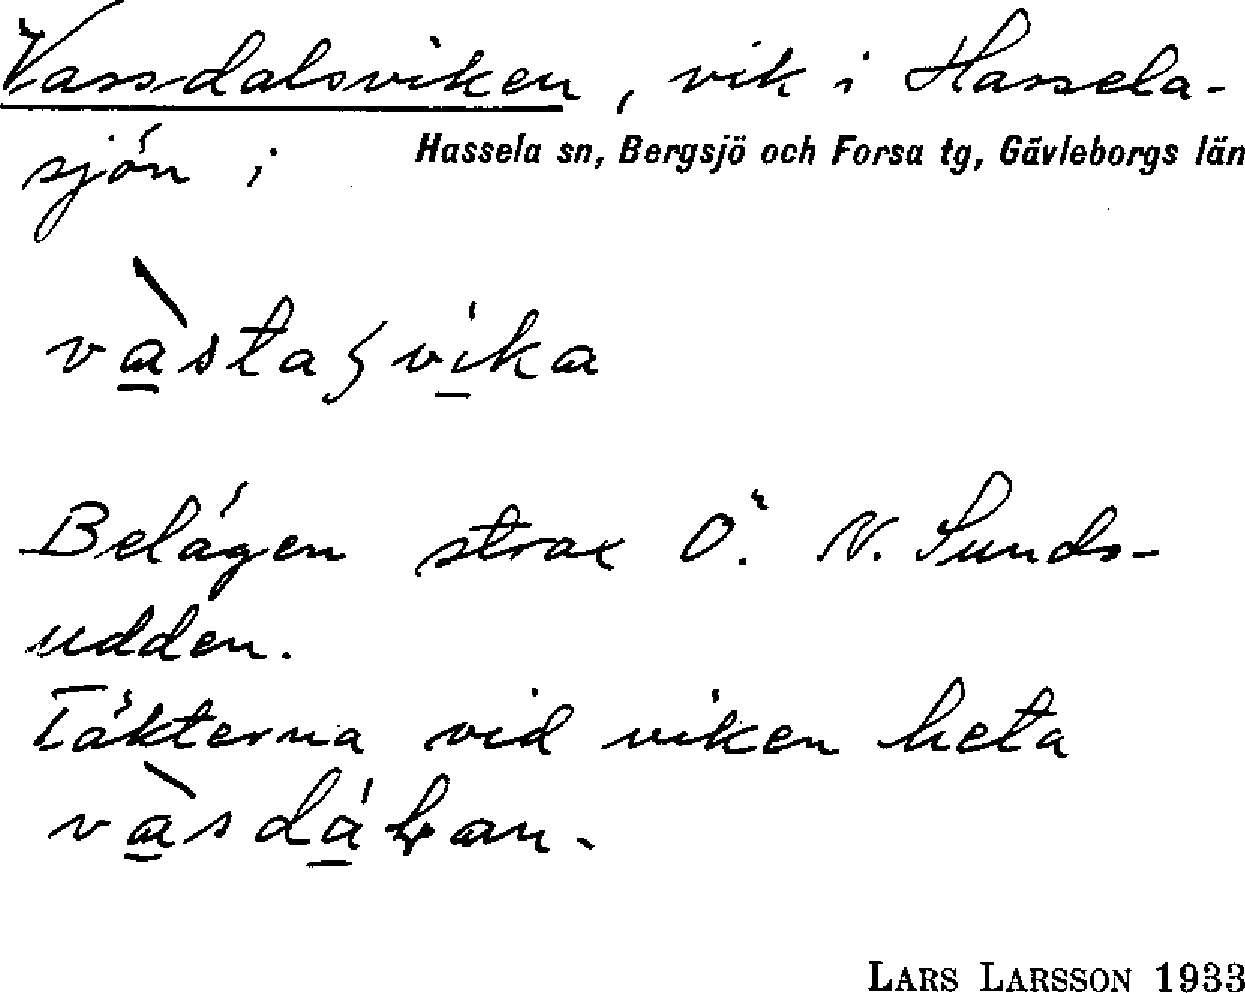 Vassdalsviken, vik i Hassela-
sjön i Hassela sn, Bergsjö och Forsa tg, Gävleborgs län
Belägen strax Ö. N. Sunds-
udden.
Täkterna vid viken heta
LARS LARSSON 1933